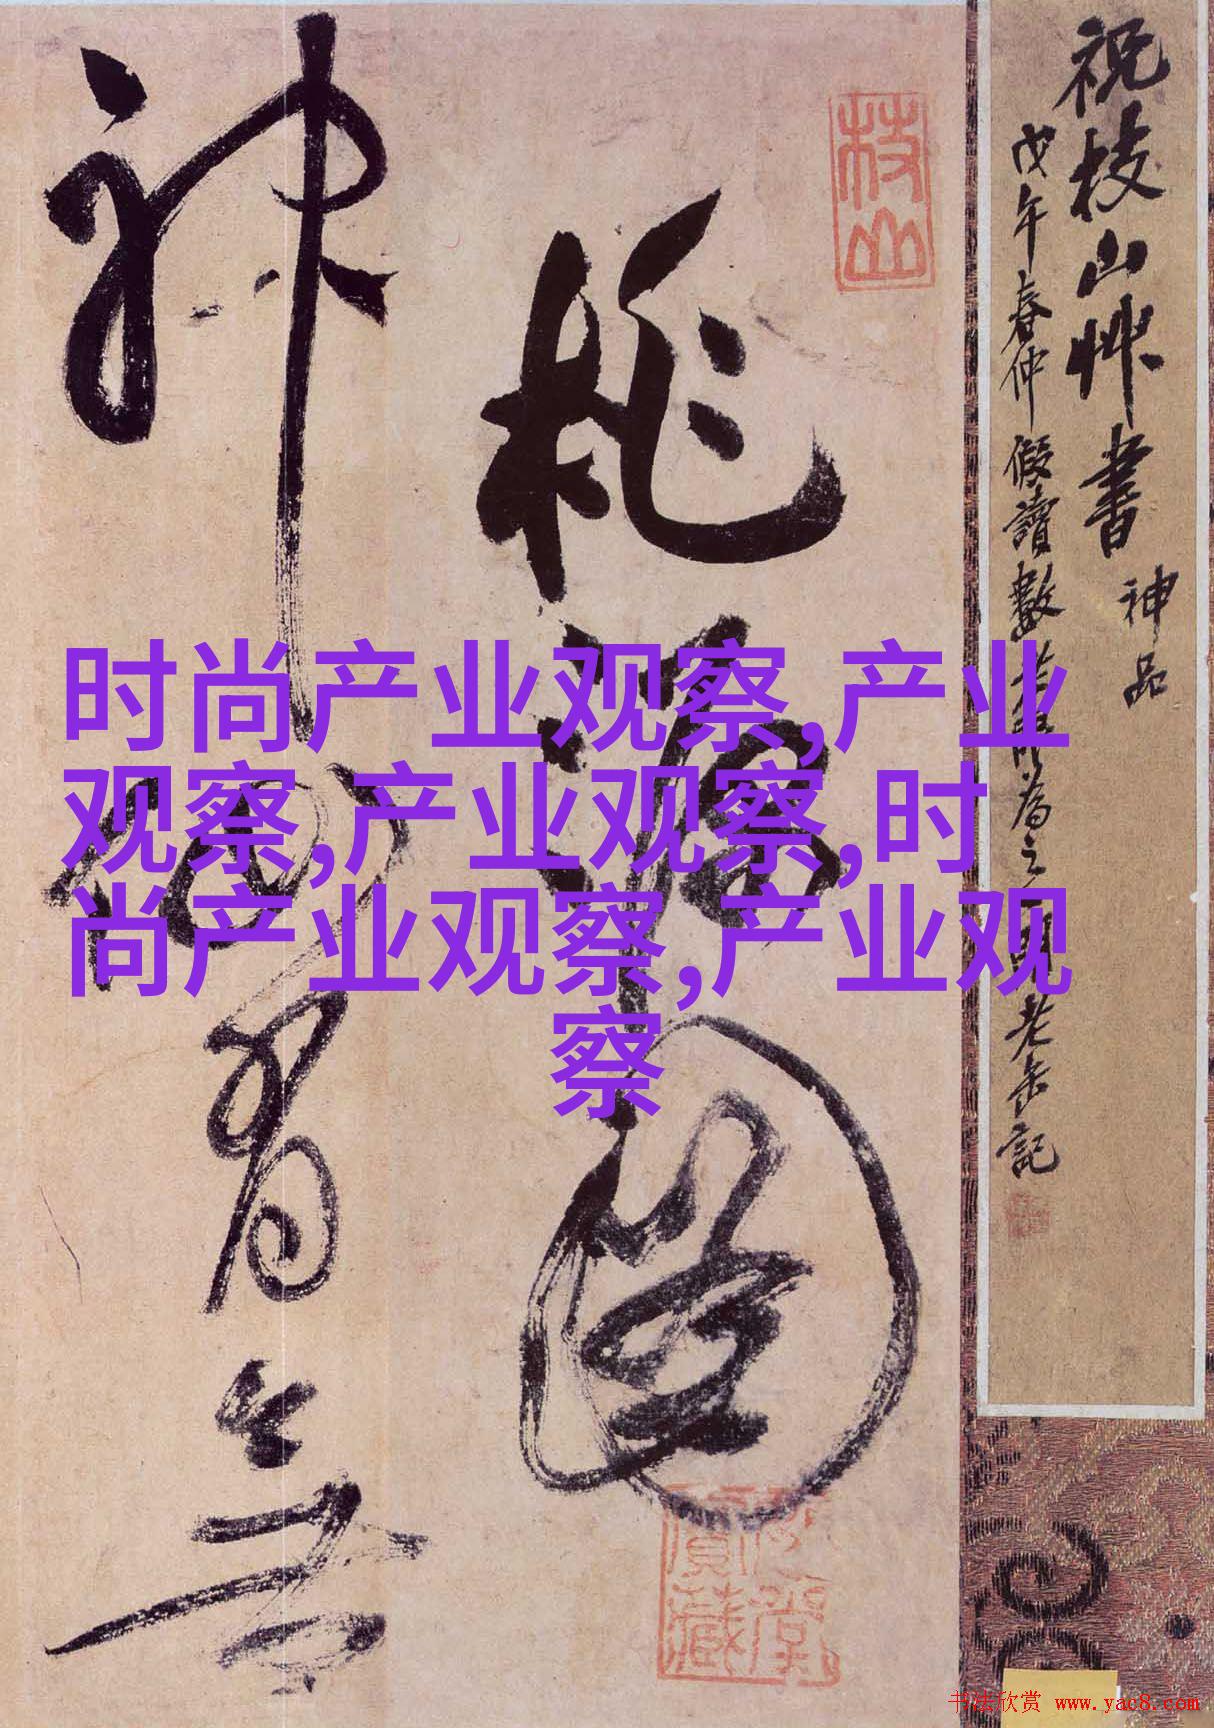 祝枝山艸書
神品
戊午春仲假讀數
為之
老缶記
枝山
桃源圖
神仙有無
时尚产业观察,产业
观察,产业观察,时
尚产业观察,产业观
察
书法欣赏 www.yac8.com